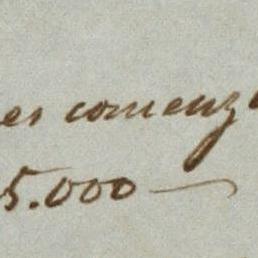 es comenz
5.000